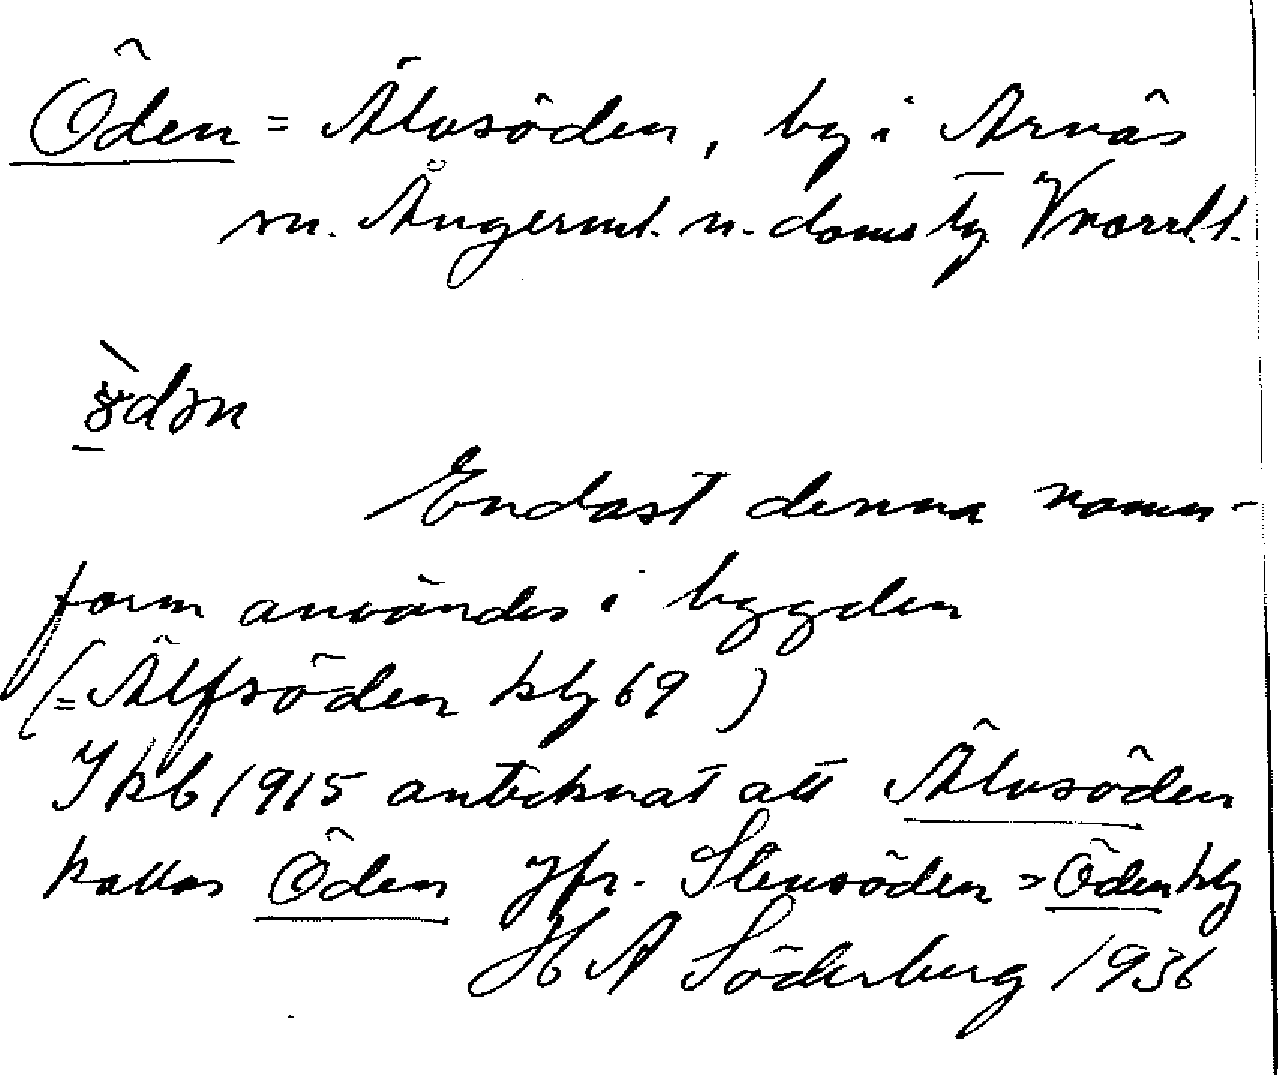 Öden = Älvsöden, by i Arnäs
sn. Ångerml. n. doms tg Vnorrl l.
ödən
Endast denna namn-
form användes i bygden
(= Älfsöden kbg 69)
I kb 1915 antecknat att Älvsöden
kallas Öden Jfr. Stensöden = Öden kbg
H A Söderberg 1936